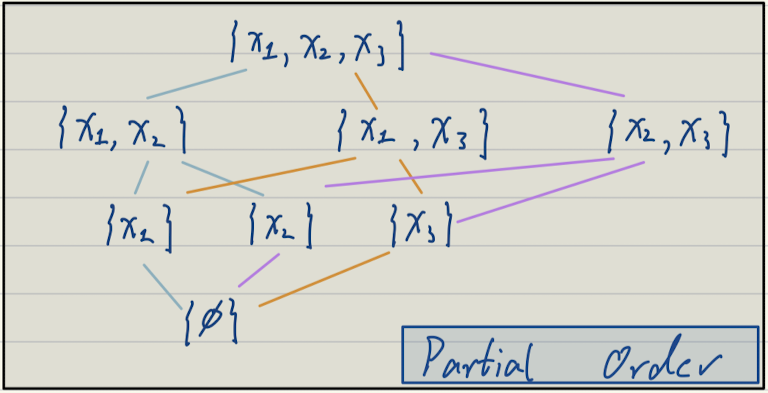 {x₁, x₂, x₃}
{x₁, x₂} {x₁, x₃} {x₂, x₃}
{x₁} {x₂} {x₃}
{∅}
Partial Order